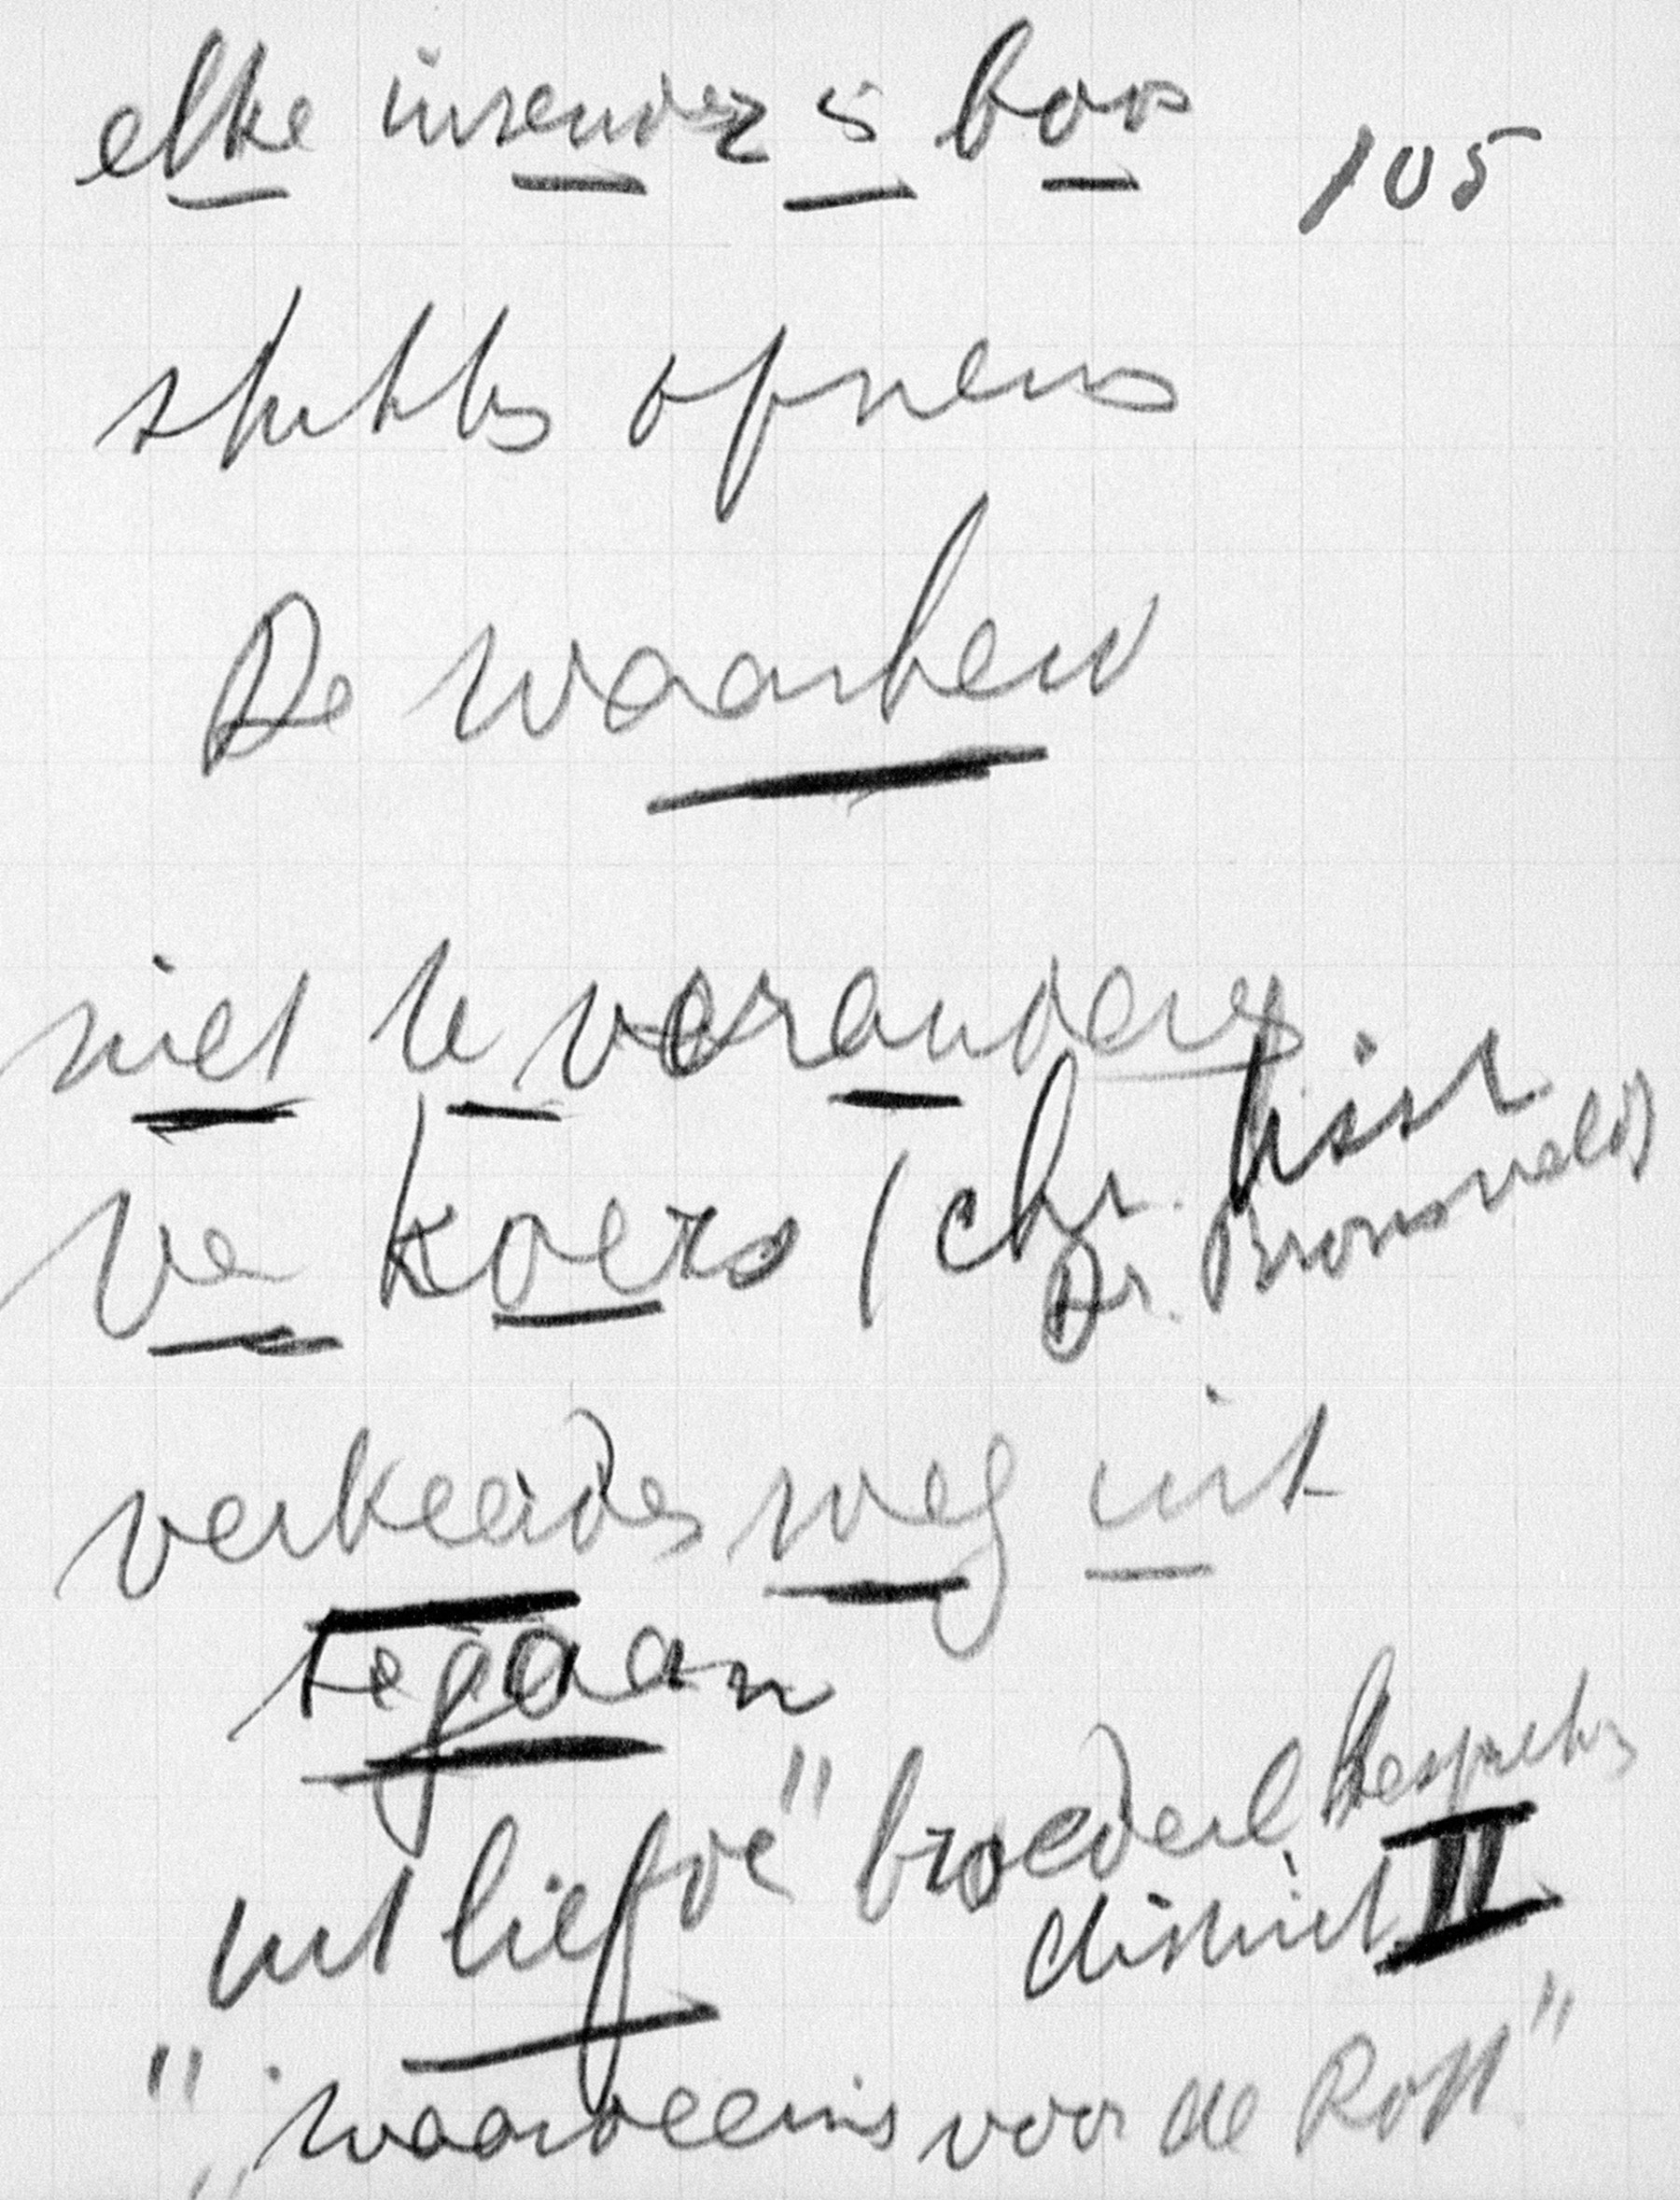 elke inzender is boos 105
stukken opnem
De waarheid
niet te veranderen
Uw koers (chr. hist
Dr. Bronsveld)
verkeerde weg uit
te gaan
uit liefde" broederl
district II
"waardeering voor de Rott"